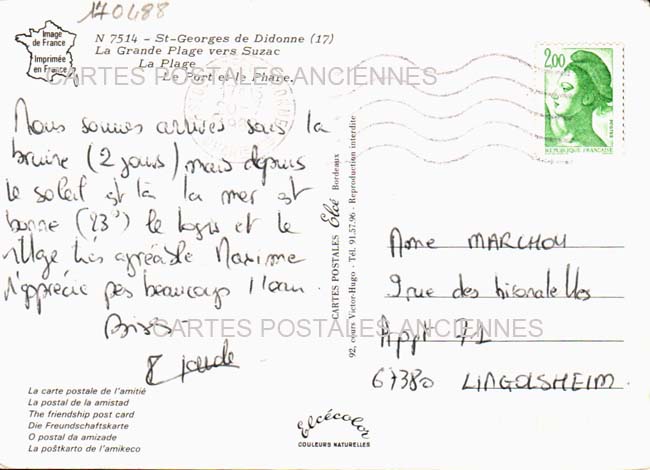 170488
Image
de France
Imprimée
en France
N 7514 - St-Georges de Didonne (17)
La Grande Plage vers Suzac
La Plage
Le Port et le Phare.
CARTES POSTALES ANCIENNES
2,00
REPUBLIQUE FRANÇAISE
Nous sommes arrivés sous la
bruine (2 jours) mais depuis
le soleil est là la mer est
bonne (23°) le logis et le
village très agréable Maxime
n'apprécie pas beaucoup l'eau
Bises
CARTES POSTALES ANCIENNES
La carte postale de l'amitié
La postal de la amistad
The friendship post card
Die Freundschaftskarte
O postal da amizade
La poŝtkarto de l'amikeco
CARTES POSTALES Elcé Bordeaux
92, cours Victor-Hugo - Tél. 91.57.96 - Reproduction interdite
Elcécolor
COULEURS NATURELLES
Mme MARCHOU
9 rue des
Appt 71
67380 LINGOLSHEIM